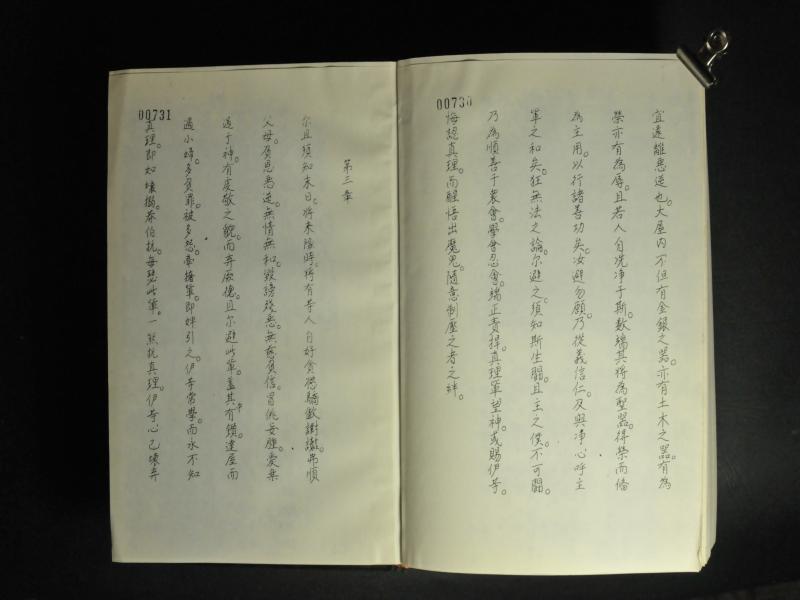 00730
宜遠離惡逆也。大屋內不但有金銀之器。亦有土木之器。有為
榮亦有為辱。且若人自洗淨于斯。數端其將為聖器。得榮而脩
為主用。以行諸善功矣。汝避勿願。乃從義信仁。及與凈心呼主
軍之和矣。狂無法之論。尔避之。須知斯生鬪。且主之僕。不可鬪。
乃為順善于衆會。學會忍會。端正責捍真理軍。望神。或賜伊等。
悔認真理。而醒悟出魔鬼。隨意制壓之者之絆。
00731
第三章
尔且須知末日。將來臨時。將有等人自好貪惡驕
父母。負恩惡逆。無情無和。毀謗
逆于神。有虔敬之貌。而弃厥德。且尔避此軍。蓋其中有鑽達屋而
過小婦。多負罪。被多慾。牽搶軍。即
引之。伊等常學。而永不知
真理。即如
泰伯抗。每瑟此軍。一然抗真理。伊等心已壞弃